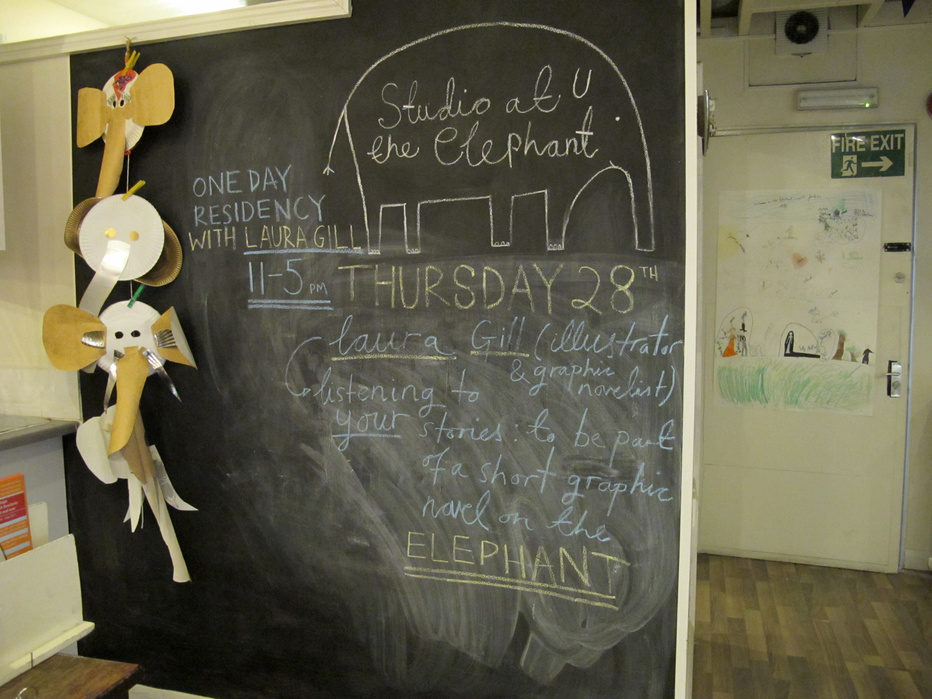 Studio at
the Elephant.
ONE DAY
RESIDENCY
WITH LAURA GILL
11-5 PM
THURSDAY 28TH
Laura Gill (illustrator
& graphic
novelist)
listening to
your stories: to be part
of a short graphic
novel on the
ELEPHANT
FIRE EXIT